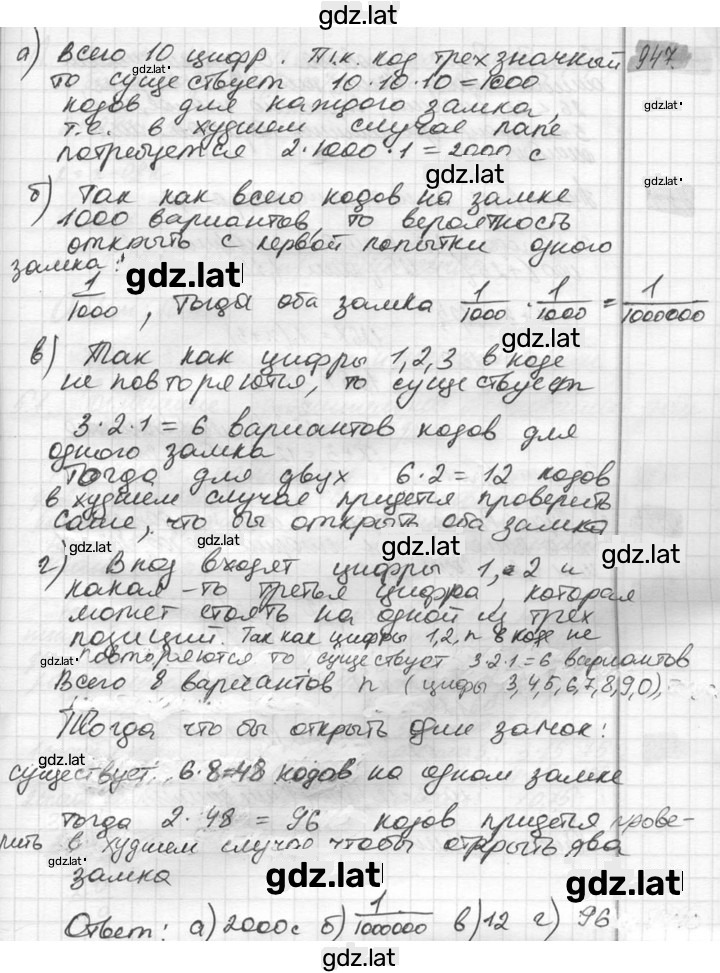 gdz.lat
а) Всего 10 цифр. Т.к. код трехзначный 947.
gdz.lat
то существует 10·10·10=1000
gdz.lat
кодов для каждого замка,
т.е. в худшем случае папе
потребуется 2·1000·1=2000 с
gdz.lat
б) Так как всего кодов на замке
1000 вариантов, то вероятность
открыть с первой попытки одного
замка:
gdz.lat
1/1000, тогда оба замка 1/1000 · 1/1000 = 1/1000000
gdz.lat
в) Так как цифры 1,2,3 в коде
не повторяются, то существует
3·2·1=6 вариантов кодов для
одного замка
Тогда для двух 6·2=12 кодов
в худшем случае придется проверить
Саше, что бы открыть оба замка
gdz.lat gdz.lat gdz.lat gdz.lat
г) В код входят цифры 1, 2 и
какая-то третья цифра, которая
может стоять на одной из трех
позиций. Так как цифры 1,2,n в коде не
gdz.lat
повторяются то существует 3·2·1=6 вариантов
Всего 8 вариантов n (цифы 3,4,5,6,7,8,9,0),
Тогда что бы открыть один замок:
gdz.lat
существует 6·8=48 кодов на одном замке
тогда 2·48=96 кодов придется прове-
рить в худшем случае чтобы открыть два
замка
gdz.lat gdz.lat
Ответ: а) 2000с б) 1/1000000 в) 12 г) 96
gdz.lat